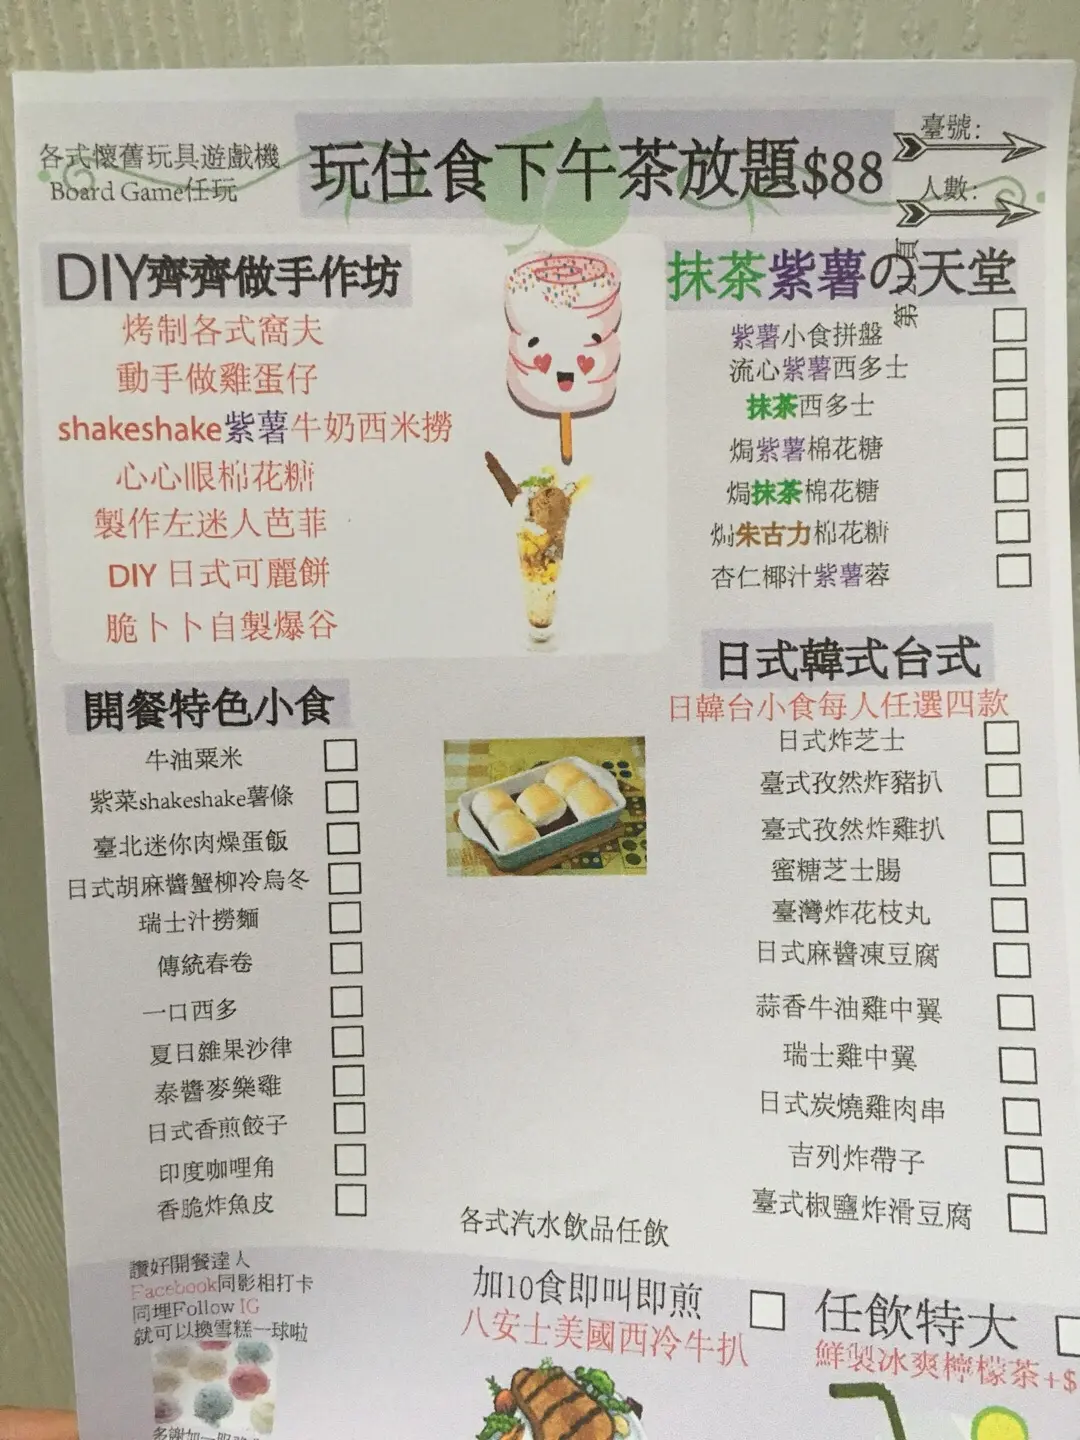 各式懷舊玩具遊戲機
Board Game任玩
玩住食下午茶放題$88
臺號:
人數:
DIY齊齊做手作坊
烤制各式窩夫
動手做雞蛋仔
shakeshake紫薯牛奶西米撈
心心眼棉花糖
製作左迷人芭菲
DIY 日式可麗餅
脆卜卜自製爆谷
抹茶紫薯の天堂
紫薯小食拼盤
流心紫薯西多士
抹茶西多士
焗紫薯棉花糖
焗抹茶棉花糖
焗朱古力棉花糖
杏仁椰汁紫薯蓉
開餐特色小食
牛油粟米
紫菜shakeshake薯條
臺北迷你肉燥蛋飯
日式胡麻醬蟹柳冷烏冬
瑞士汁撈麵
傳統春卷
一口西多
夏日雜果沙律
泰醬麥樂雞
日式香煎餃子
印度咖哩角
香脆炸魚皮
日式韓式台式
日韓台小食每人任選四款
日式炸芝士
臺式孜然炸豬扒
臺式孜然炸雞扒
蜜糖芝士腸
臺灣炸花枝丸
日式麻醬凍豆腐
蒜香牛油雞中翼
瑞士雞中翼
日式炭燒雞肉串
吉列炸帶子
臺式椒鹽炸滑豆腐
各式汽水飲品任飲
讚好開餐達人
Facebook同影相打卡
同埋Follow IG
就可以換雪糕一球啦
加10食即叫即煎
八安士美國西冷牛扒
任飲特大
鮮製冰爽檸檬茶+$